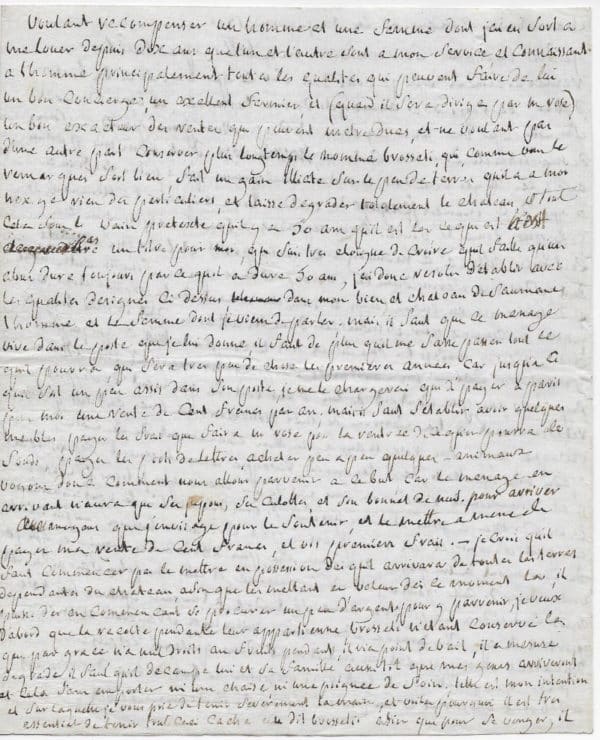 Voulant recompenser un homme et une femme dont j'ai eu fort a
me louer depuis dix ans que l'un et l'autre sont a mon service et connaissant
a l'homme principalement toutes les qualites qui peuvent faire de lui
un bon concierge, un excellent fermier et (quand il sera dirigé par m rose)
un bon exacteur des rentes qui peuvent m'etre dues, et ne voulant par
d'une autre part conserver plus longtemps le nommé brosseti qui comme vous le
remarques fort bien fait un gain illicite sur le peu de terres qu'il a a moi
n'exige rien des particuliers, et laisse degrader totalement le chateau, et tout
cela sous le vain pretexte qu'il y a 50 ans qu'il est la ce qui est
un titre pour moi, qui suis tres eloigné de croire qu'il faille qu'un
abus dure toujours parce qu'il a duré 50 ans, j'ai donc resolu d'etablir avec
les qualites designes ci dessus dans mon bien et chateau de Saumanes
l'homme et la femme dont je viens de parler. mais il faut que ce menage
vive dans le poste que je lui donne il faut de plus qu'il me fasse passer tout ce
qu'il pourra qui sera tres peu de chose les premieres annees car jusqu'a ce
qu'il soit un peu assis dans son poste, je ne le chargerai que de payer a paris
pour moi une rente de cent francs par an, mais il faut s'etablir, avoir quelques
meubles, payer les frais que faira m rose pour la rentrée de ce qu'on pourra de
fonds, payer les ports de lettres acheter peu a peu quelques animaux
voyons donc comment nous allons parvenir a ce but car le menage en
arrivant n'aura que sa culotte et son bonnet de nuit. pour arriver
moyens que j'envisage pour le soutenir et le mettre a meme de
payer ma rente de cent francs, et vos premiers frais. — je crois qu'il
faut commencer par le mettre en possession des qu'il arrivera de toutes les terres
dependantes du chateau, afin que les mettant en valeur des ce moment la, il
puisse des en commencant se procurer un peu d'argent pour y parvenir, je veux
d'abord que la recolte pendante leur appartienne brosseti n'etant conservé la
que par grace n'a nul droits aux fruits pendants, il n'a point de bail, il a mesuré
degradé il faut qu'il decampe lui et sa famille aussitot que mes gens arriveront
et cela sans emporter ni une chaise ni une poignée de foin. telle est mon intention
et sur laquelle je vous prie de tenir severement la main, et voici pourquoi il est tres
essentiel de tenir tout ceci caché au dit brosseti afin que pour se venger, il